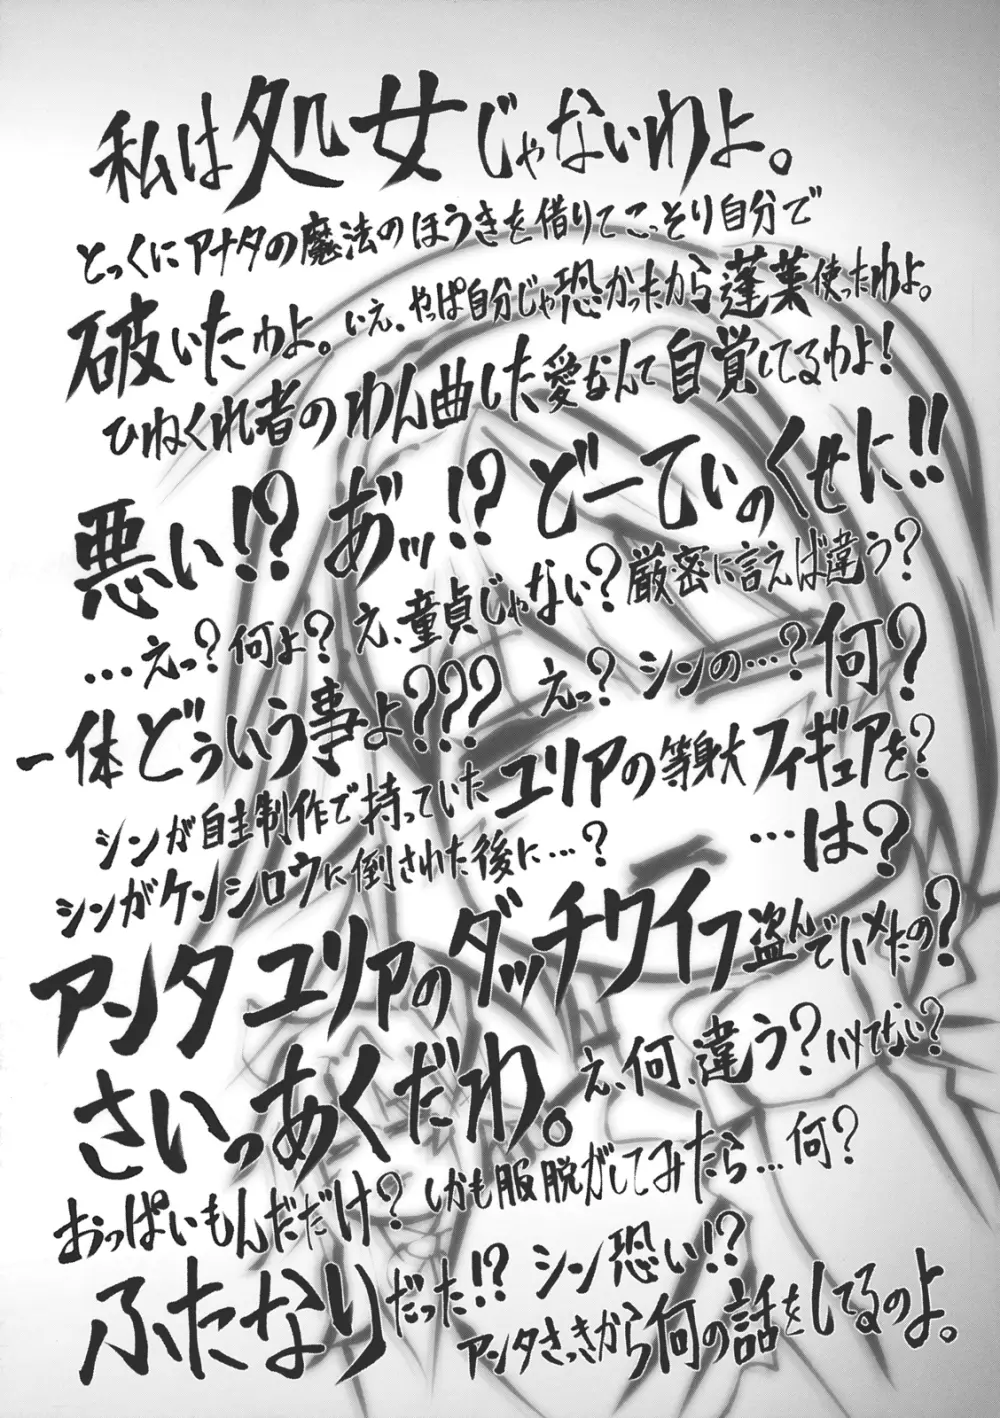 私は処女じゃないわよ。
とっくにアナタの魔法のほうきを借りてこっそり自分で
破いたわよ。いえ、やっぱ自分じゃ恐かったから蓬莱使ったわよ。
ひねくれ者のわん曲した愛なんて自覚してるわよ!
悪い!?あ゛ッ!?どーてぃのくせに!!
…えっ?何よ?え、童貞じゃない?厳密に言えば違う?
一体どういう事よ???えっ?シンの…?何?
シンが自主制作で持っていたユリアの等身大フィギュアを?
シンがケンシロウに倒された後に…?…は?
アンタユリアのダッチワイフ盗んでハメたの?
さいっあくだわ。え、何、違う?ハメてない?
おっぱいもんだだけ?しかも服脱がしてみたら…何?
ふたなりだった!?シン恐い!?
アンタさっきから何の話をしてるのよ。